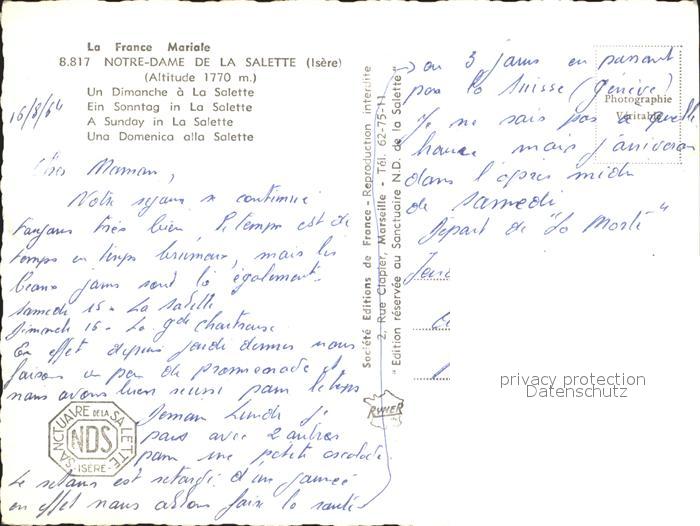 La France Mariale
8.817 NOTRE-DAME DE LA SALETTE (Isère)
(Altitude 1770 m.)
Un Dimanche à La Salette
Ein Sonntag in La Salette
A Sunday in La Salette
Una Domenica alla Salette
16/8/64
Maman,
Notre séjour se continue
toujours très bien, le temps est de
temps en temps brumeux, mais les
beaux jours sont là également.
Samedi 15 - La Salette
Dimanche 16 - La gde Chartreuse
En effet depuis jeudi dernier nous
faisons un peu de promenade et
nous avons bien réussi pour le temps
Demain Lundi je
pars avec 2 autres
pour une petite escalade.
Le retour est retardé d'une journée
en effet nous allons faire la route
SANCTUAIRE DE LA SALETTE
NDS
- ISÈRE -
Société Editions de France - Reproduction interdite
2, Rue Clapier, Marseille - Tél. 62-75-11
"Edition réservée au Sanctuaire N.D. de la Salette"
RYNER
ou 3 jours en passant
par la Suisse (Genève)
Je ne sais pas à quelle
heure mais j'arriverai
dans l'après midi
de Samedi
Départ de "La
Photographie
Véritable
privacy protection
Datenschutz